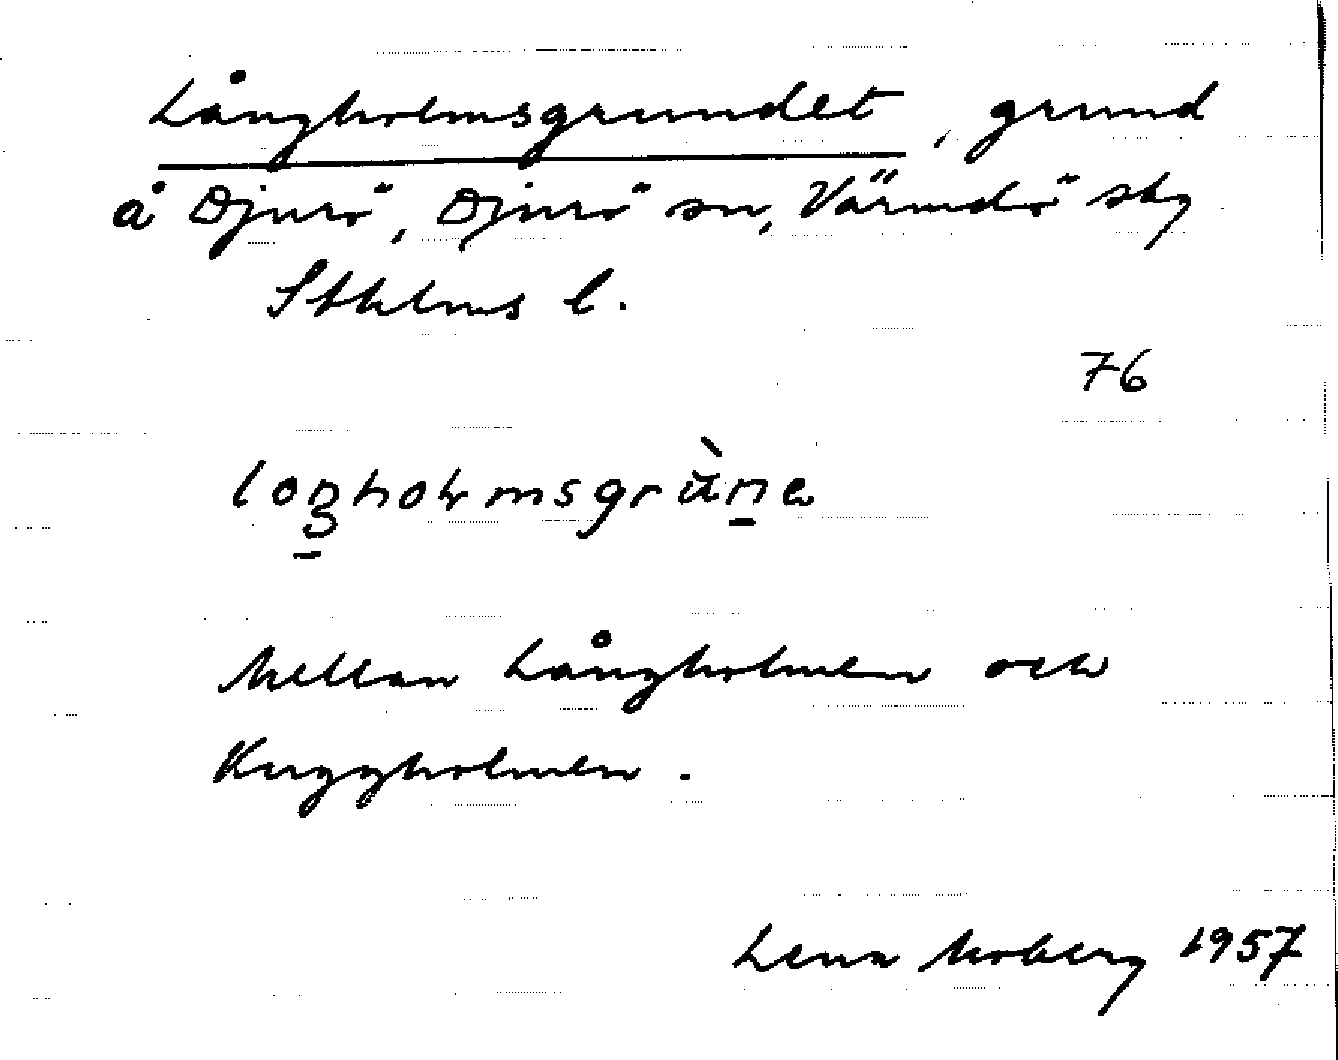 Långholmsgrundet, grund
å Djurö, Djurö sn, Värmdö sky
Sthlms l.
76
Mellan Långholmen och
Kuggholmen.
Lena Moberg 1957